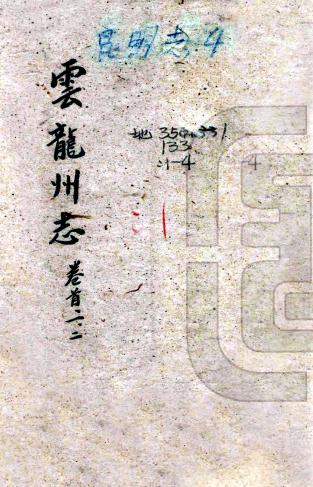 昆明志4
雲龍州志
卷首一、二
地 350.331
133
:1-4
4